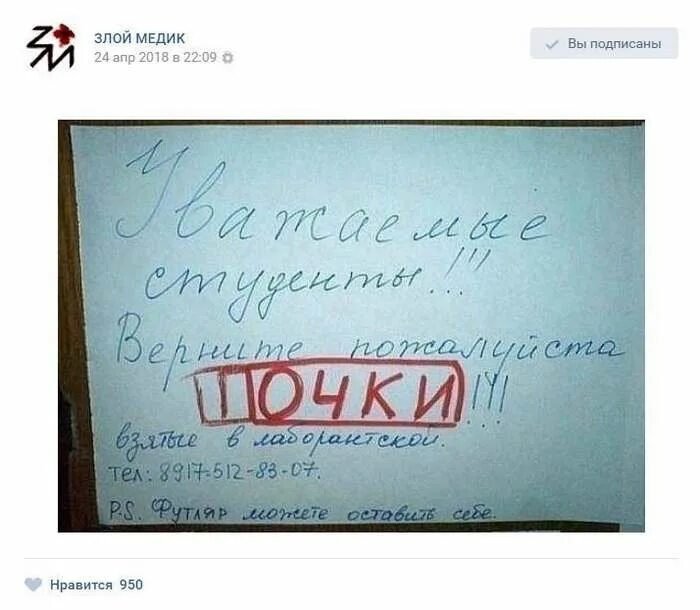 ЗЛОЙ МЕДИК
24 апр 2018 в 22:09
Вы подписаны
Уважаемые
студенты!!!
Верните пожалуйста
ПОЧКИ!!!
взятые в лаборантской.
тел: 8917-512-83-07.
P.S. Футляр можете оставить себе.
Нравится 950